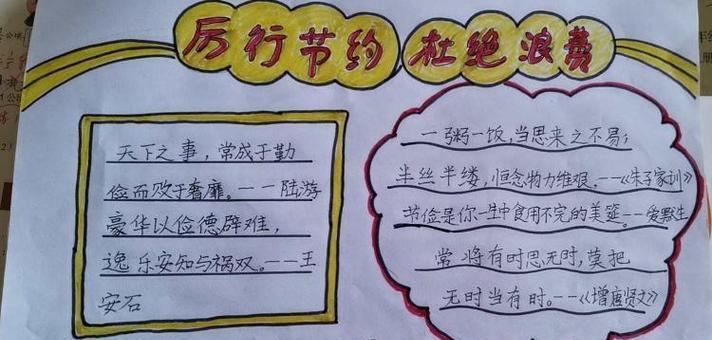 厉行节约 杜绝浪费
天下之事，常成于勤
俭而败于奢靡。——陆游
豪华以俭德辟难，
逸乐安知与祸双。——王
安石
一粥一饭，当思来之不易；
半丝半缕，恒念物力维艰。——《朱子家训》
节俭是你一生中食用不完的美筵。——爱默生
常将有时思无时，莫把
无时当有时。——《增广贤文》